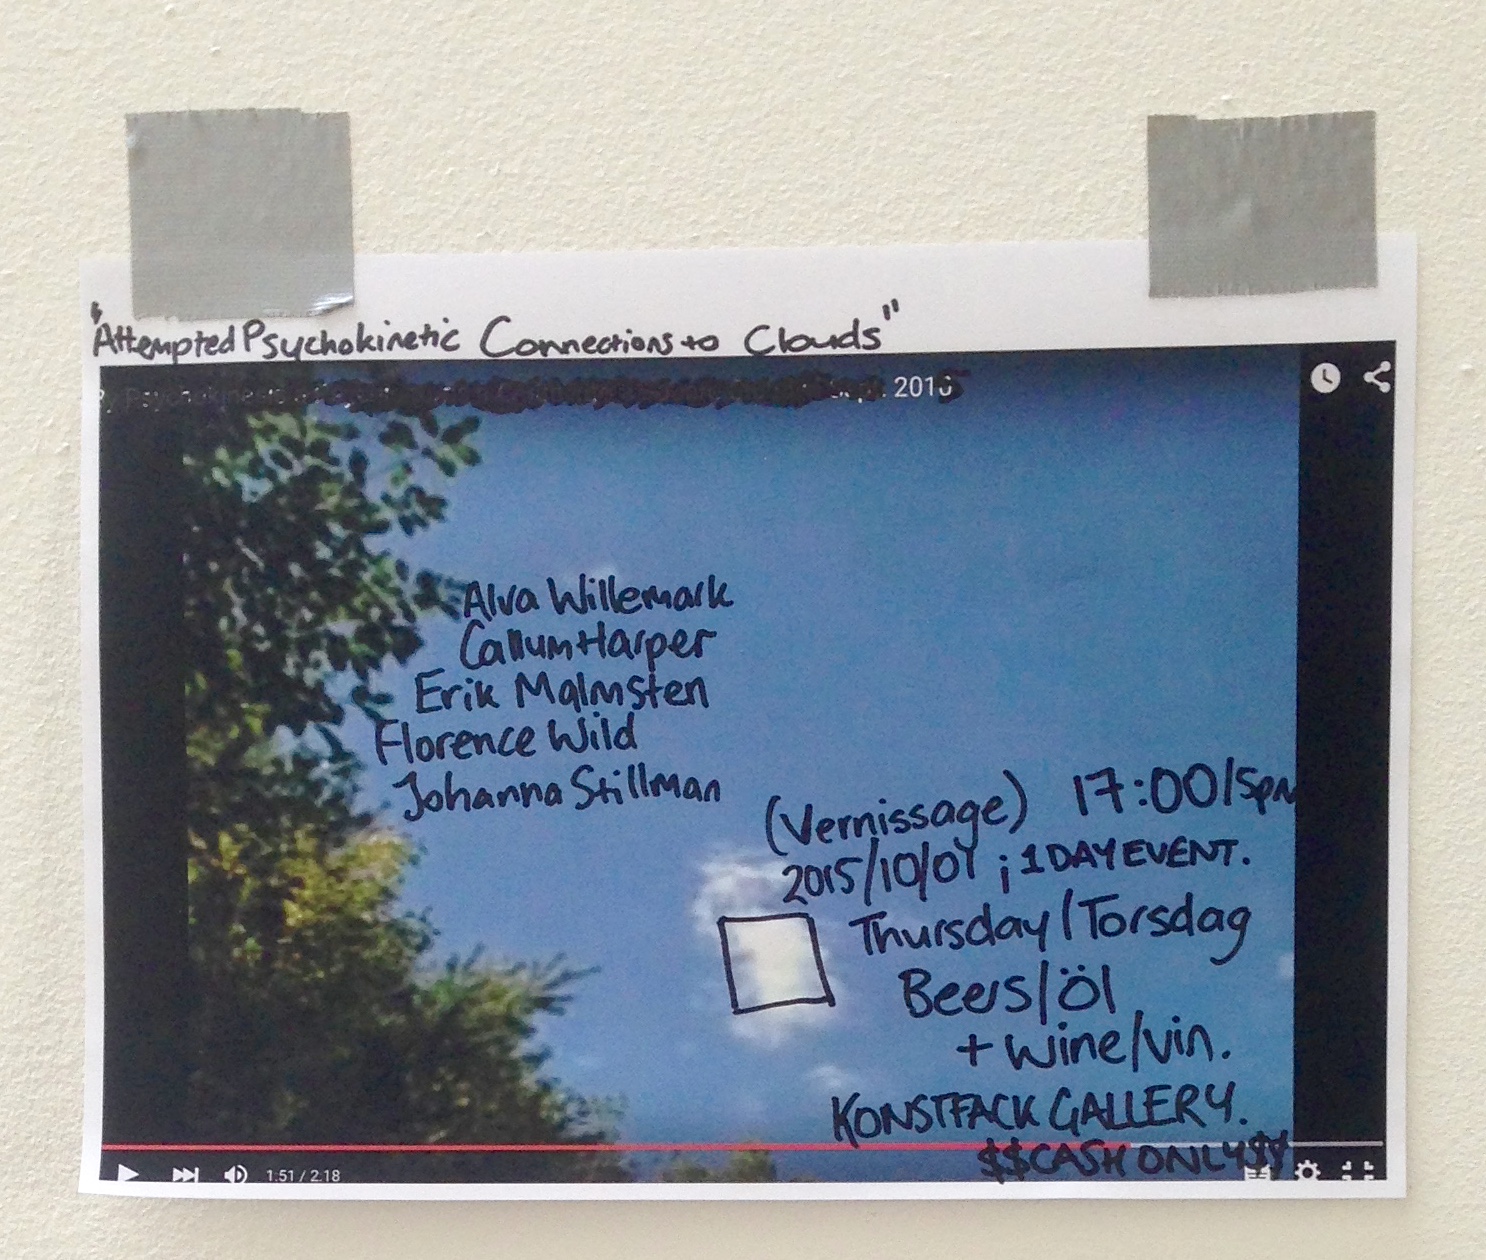 "Attempted Psychokinetic Connections to Clouds"
Psychokinesis
2015
Alva Willemark
Callum Harper
Erik Malmsten
Florence Wild
Johanna Stillman
(Vernissage) 17:00/5pm
2015/10/01 ; 1 DAY EVENT.
Thursday/Torsdag
Beers/öl
+ Wine/vin.
KONSTFACK GALLERY.
$$CASH ONLY$$
1:51 / 2:18